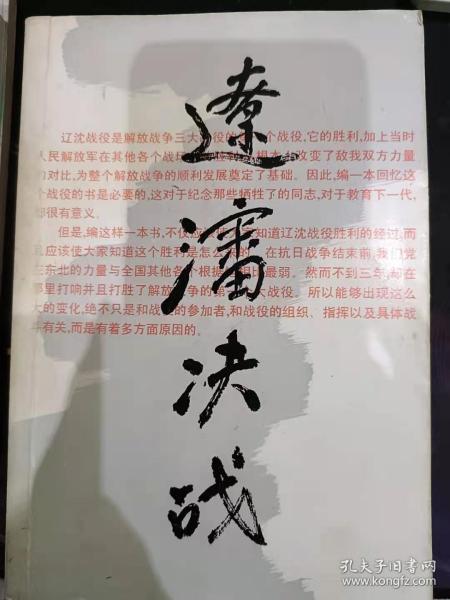 遼瀋决战
辽沈战役是解放战争三大战役的第一个战役,它的胜利,加上当时
人民解放军在其他各个战场的胜利,根本上改变了敌我双方力量
的对比,为整个解放战争的顺利发展奠定了基础。因此,编一本回忆这
个战役的书是必要的,这对于纪念那些牺牲了的同志,对于教育下一代,
都很有意义。
但是,编这样一本书,不仅应该使大家知道辽沈战役胜利的经过,而
且应该使大家知道这个胜利是怎么来的。在抗日战争结束前,我们党
在东北的力量与全国其他各个根据地相比最弱。然而不到三年,却在
那里打响并且打胜了解放战争的第一个大战役。所以能够出现这么
大的变化,绝不只是和战役的参加者,和战役的组织、指挥以及具体战
斗有关,而是有着多方面原因的。
孔夫子旧书网
www.kongfz.com